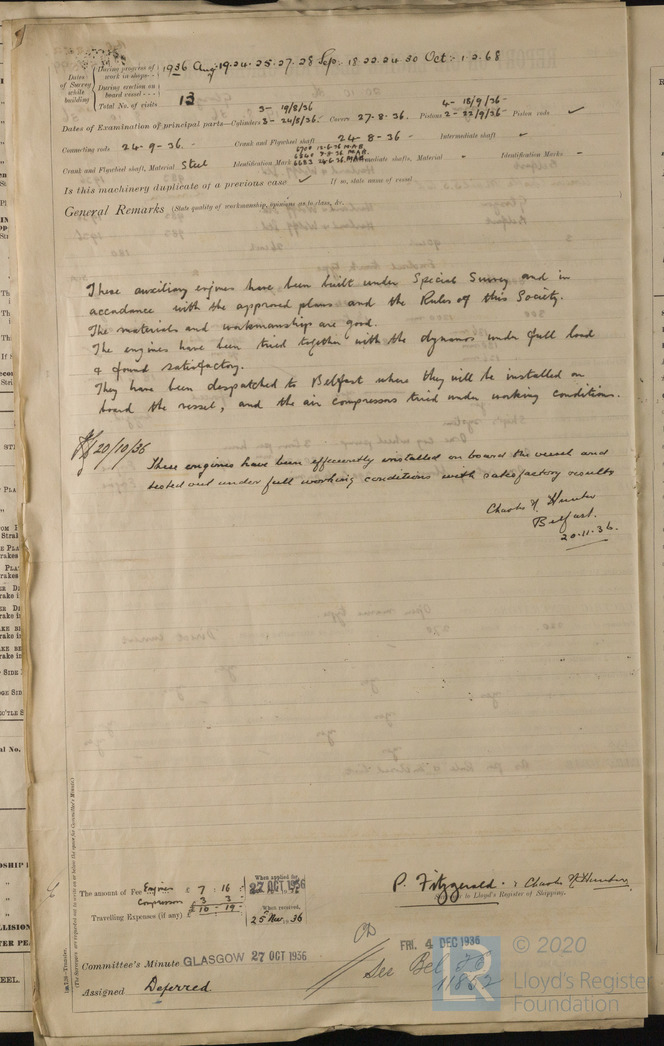 Dates of Survey while building
During progress of work in shops - - 1936 Aug 19. 24. 25. 27. 28 Sep. 18 22. 24. 30 Oct. 1. 2. 6 8
During erection on board vessel - - -
Total No. of visits 13
Dates of Examination of principal parts—Cylinders 3- 19/8/36 3- 24/8/36. Covers 27-8-36. Pistons 4- 18/9/36- 2- 22/9/36- Piston rods ✓
Connecting rods 24-9-36. Crank and Flywheel shaft 24-8-36 - Intermediate shaft
Crank and Flywheel shaft, Material Steel Identification Mark 6683 24-6-36. MAR. Intermediate shafts, Material - Identification Marks -
Is this machinery duplicate of a previous case ✓ If so, state name of vessel
General Remarks (State quality of workmanship, opinions as to class, &c.
These auxiliary engines have been built under Special Survey and in
accordance with the approved plans and the Rules of this Society.
The materials and workmanship are good.
The engines have been tried together with the dynamos under full load
& found satisfactory.
They have been despatched to Belfast where they will be installed on
board the vessel, and the air compressors tried under working conditions.
20/10/36
These engines have been efficiently installed on board the vessel and
tested out under full working conditions with satisfactory results
Charles N. Hunter
Belfast.
20-11-36.
The amount of Fee Engines £ 7 : 16 :
Compressors £ 3 3 :
£ 10 - 19 -
When applied for, 27 OCT 1936
Travelling Expenses (if any) £
When received, 25 Nov. 36
P. Fitzgerald. & Charles N. Hunter
to Lloyd's Register of Shipping.
Committee's Minute GLASGOW 27 OCT 1936
FRI. 4 DEC 1936
Assigned Deferred
See Bel. 11852
(The Surveyors are requested not to write on or below the space for Committee's Minute.)
© 2020
Lloyd's Register
Foundation